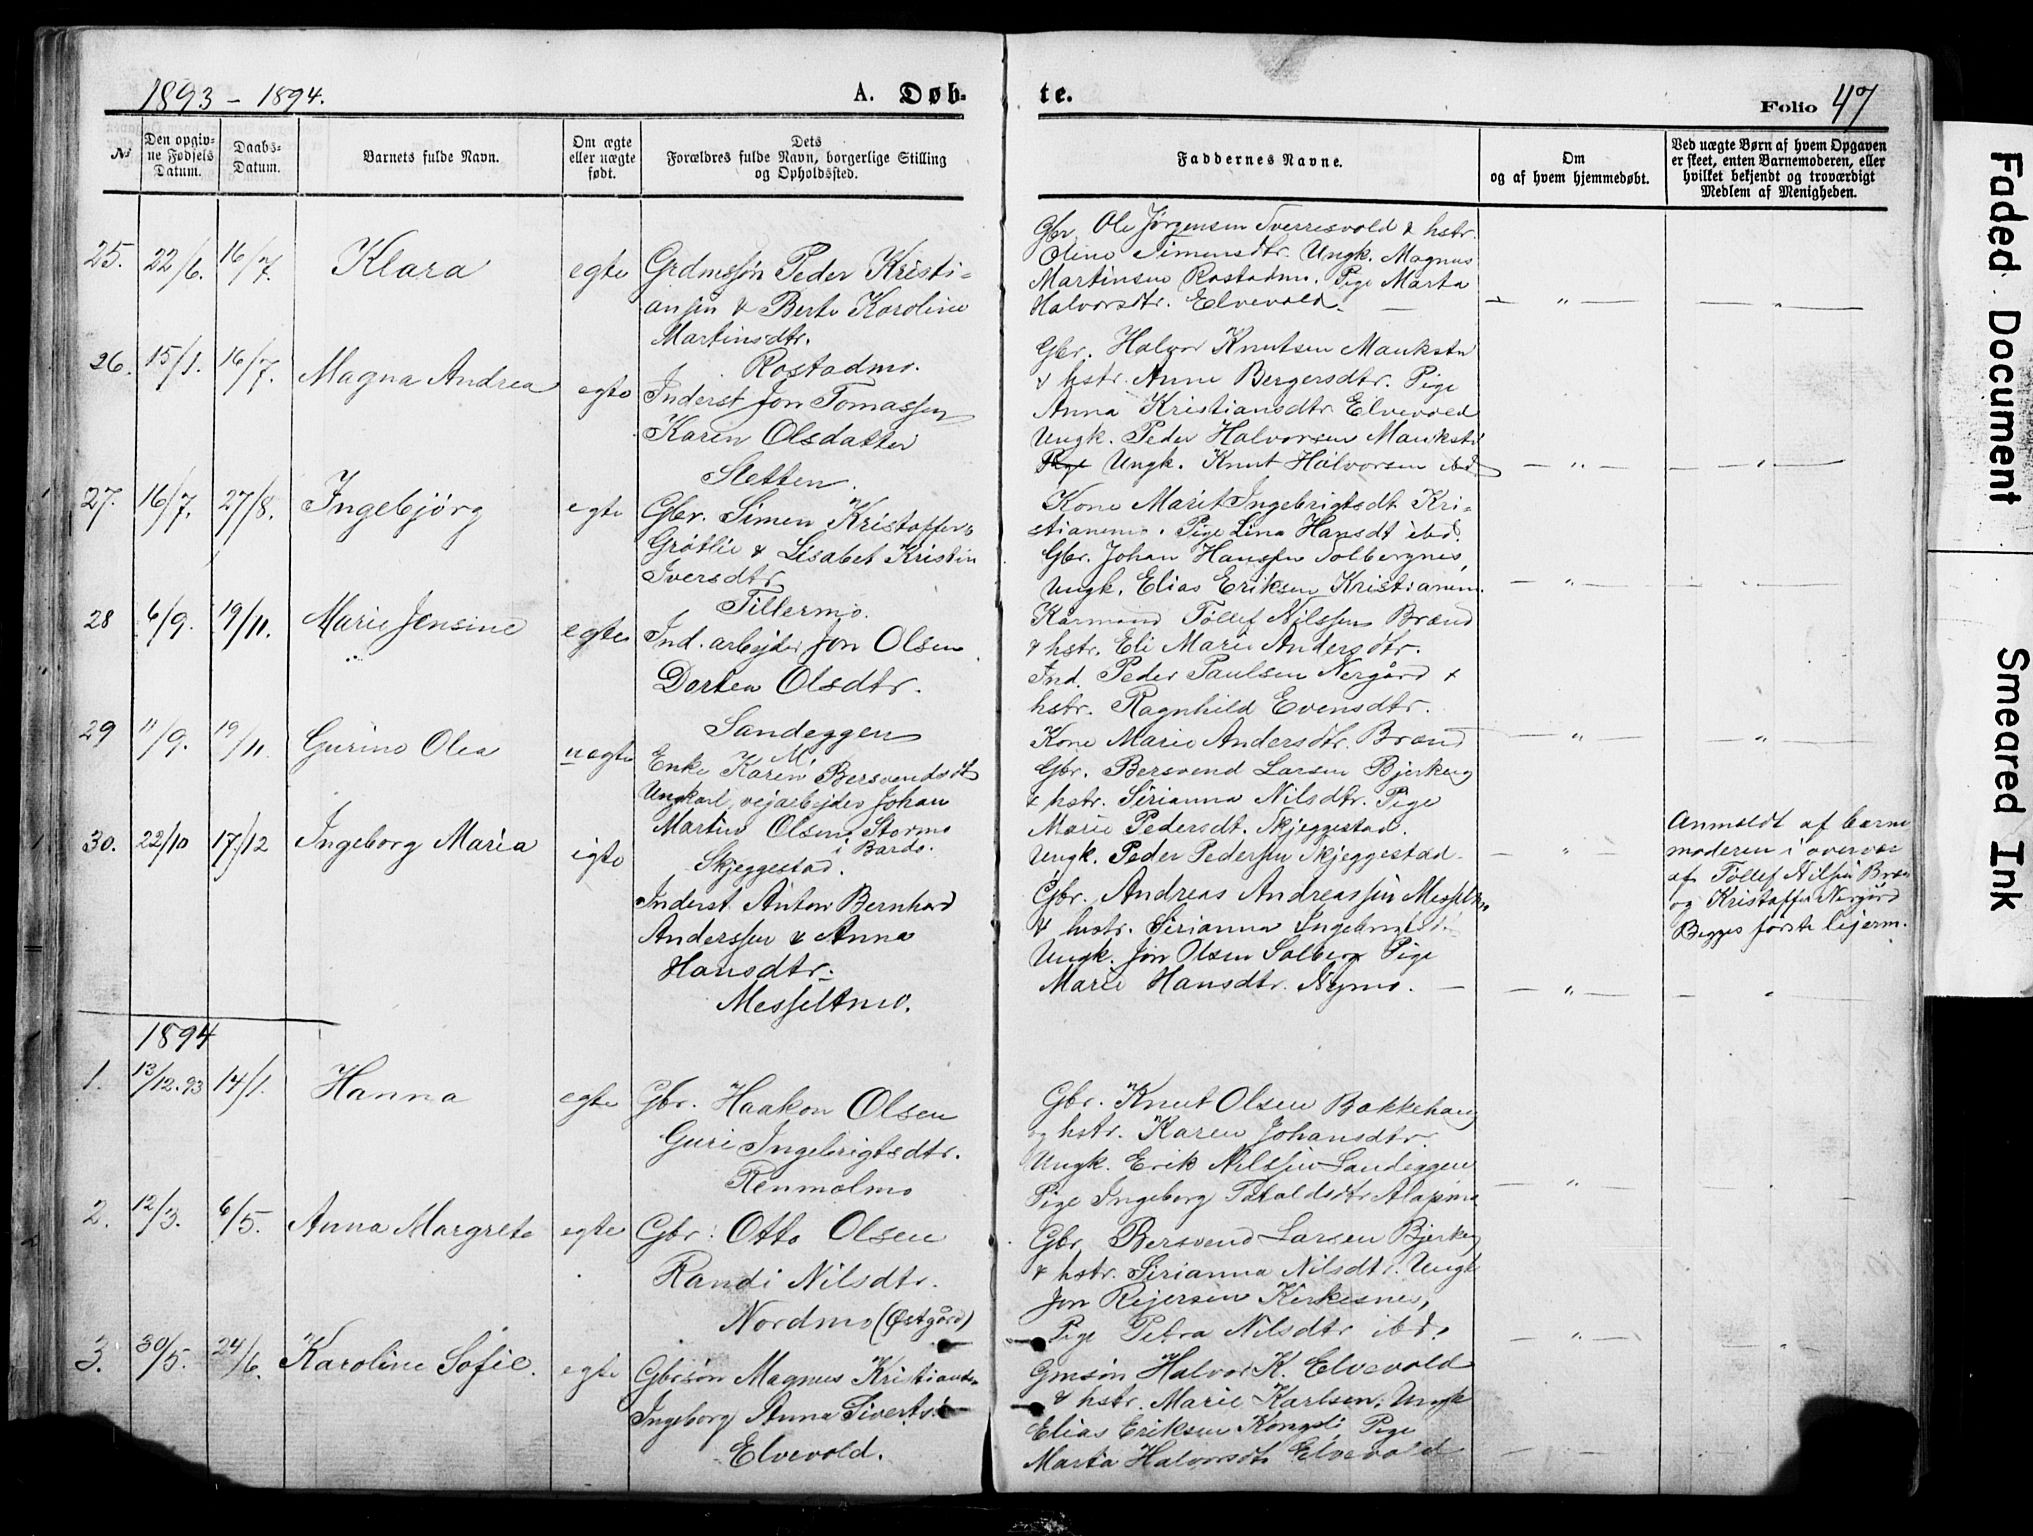 1893 - 1894.
A. Døb-
te.
Folio 47
No
Den opgiv-
ne Fødsels
Datum.
Daabs-
Datum.
Barnets fulde Navn.
Om ægte
eller uægte
født.
Dets
Forældres fulde Navn, borgerlige Stilling
og Opholdssted.
Faddernes Navne.
Om
og af hvem hjemmedøbt.
Ved uægte Børn af hvem Opgaven
er skeet, enten Barnemoderen, eller
hvilket bekjendt og troværdigt
Medlem af Menigheden.
25. 22/6. 16/7. Klara egte
Peder Kristi-
ansen & Berte Karoline
Martinsdtr.
Rostadmo.
Gbr. Ole Jørgensen Sverresvold & hstr.
Oline Simensdtr. Ungk. Magnus
Martinsen Rostadmo. Pige Marta
Halvorsdtr. Elvevold.
26. 15/1. 16/7. Magna Andrea egte
Inderst Jon Tomassen
Karen Olsdatter
Sletten.
Gbr. Halvor Knutsen
& hstr. Anne Bergersdtr. Pige
Anna Kristiansdtr Elvevold
Ungk. Peder Halvorsen
Pige Ungk. Knut Halvorsen ibd
27. 16/7. 27/8. Ingebjørg egte
Gbr. Simen Kristoffers
Grøtlie & Lisabet Kristin
Iversdtr
Tillermo.
Kone Marit Ingebrigtsdt Kri-
Pige Lina Hansdt ibd.
Gbr. Johan Hanssen Solbergnes,
Ungk. Elias Eriksen
28 6/9. 19/11. Marie Jensine egte
Ind. arbejder Jon Olsen
Dorten Olsdtr.
Sandeggen
Kårmand Tollef Nilssen Brænd
& hstr. Eli Marie Andersdtr.
Ind. Peder Paulsen Nergård &
hstr. Ragnhild Evensdtr.
29 11/9. 19/11. Gurine Olea uegte
Enke Karen M. Bersvendsdt
Ungkarl, vejarbejder Johan
Martin Olsen, Stormo
i Bardo.
Skjeggestad.
Kone Marie Andersdtr. Brænd
Gbr. Bersvend Larsen Bjerkeng
& hstr. Sirianna Nilsdtr. Pige
Marie Pedersdt. Skjeggestad.
Ungk. Peder Pedersen Skjeggestad.
Anmeldt af barne
moderen i overvær
af Tollef Nilsen Bræn
og Kristoffer Nergård
Begges første lejerm.
30. 22/10 17/12 Ingeborg Maria egte
Inderst Anton Bernhard
Anderssen & Anna
Hansdtr.
Messeltmo.
Gbr. Andreas Andreassen
& hustr. Sirianna
Ungk. Jon Olsen Solberg Pige
Marie Hansdtr. Nymo.
1894
1. 13/12.93 14/1. Hanna egte
Gbr. Haakon Olsen
Guri Ingebrigtsdtr.
Renmolmo
Gbr. Knut Olsen Bakkehaug
og hstr. Karen Johansdtr.
Ungk. Erik Nilssen Sandeggen
Pige Ingeborg
2. 12/3. 6/5. Anna Margrete egte
Gbr: Otto Olsen
Randi Nilsdtr.
Nordmo (Østgård)
Gbr. Bersvend Larsen Bjerkeng
& hstr. Sirianna Nilsdt. Ungk
Jon Rejersen Kirkesnes,
Pige Petra Nilsdtr ibd.
3. 30/5. 24/6. Karoline Sofie. egte
Gbrsøn Magnus Kristiansen
Ingeborg Anna Sivertsd
Elvevold.
Gmsøn Halvor K. Elvevold
& hstr. Marie Karlsen, Ungk
Elias Eriksen Kongsli Pige
Marta Halvorsdt. Elvevold
Faded Document
Smeared Ink